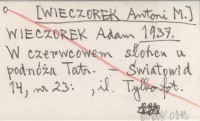 [WIECZOREK Antoni M.]
WIECZOREK Adam 1937.
W czerwcowem słońcu u
podnóża Tatr. – Światowid
14, nr 23: , il. Tylko fot.